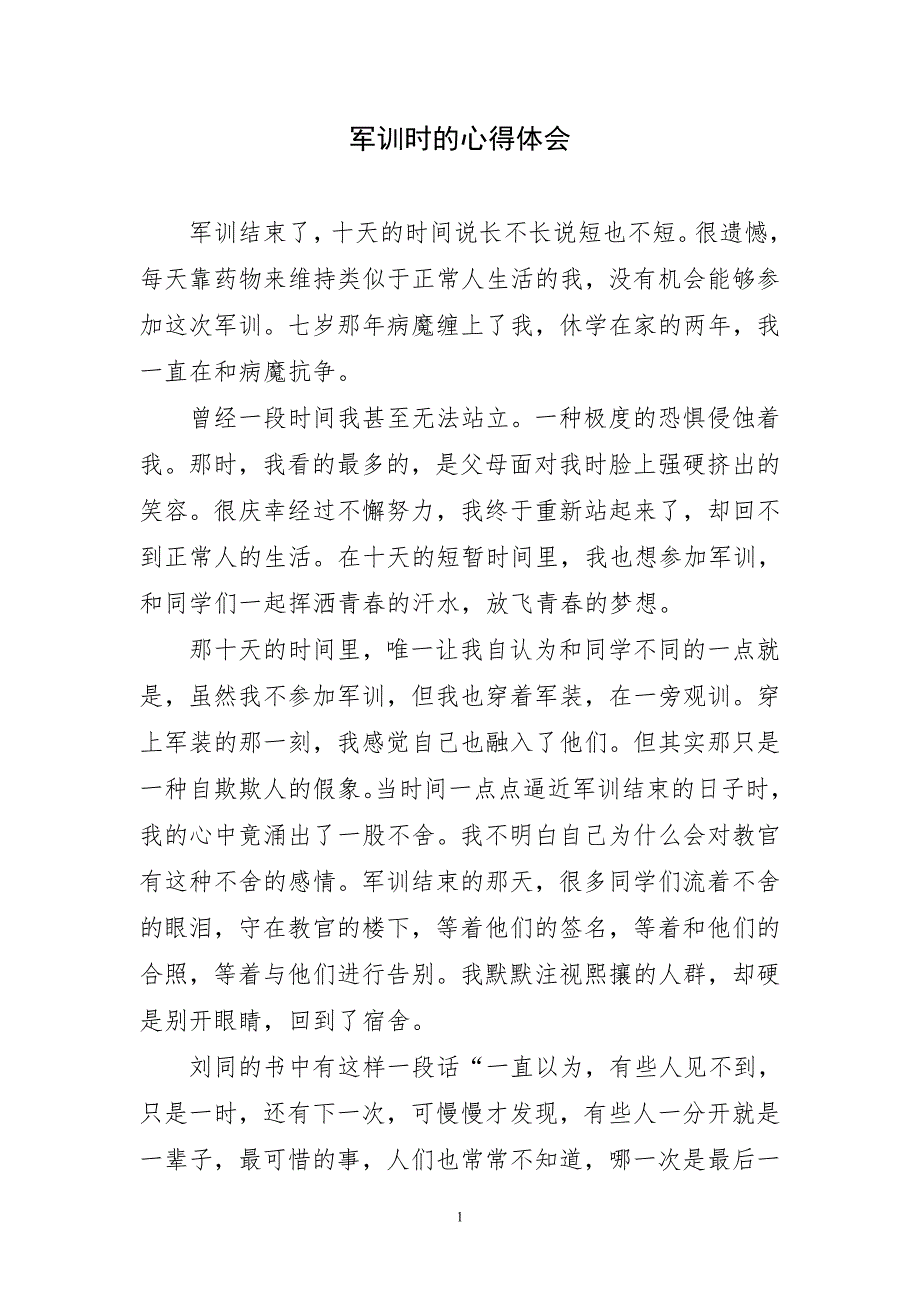 军训时的心得体会
军训结束了，十天的时间说长不长说短也不短。很遗憾，
每天靠药物来维持类似于正常人生活的我，没有机会能够参
加这次军训。七岁那年病魔缠上了我，休学在家的两年，我
一直在和病魔抗争。
曾经一段时间我甚至无法站立。一种极度的恐惧侵蚀着
我。那时，我看的最多的，是父母面对我时脸上强硬挤出的
笑容。很庆幸经过不懈努力，我终于重新站起来了，却回不
到正常人的生活。在十天的短暂时间里，我也想参加军训，
和同学们一起挥洒青春的汗水，放飞青春的梦想。
那十天的时间里，唯一让我自认为和同学不同的一点就
是，虽然我不参加军训，但我也穿着军装，在一旁观训。穿
上军装的那一刻，我感觉自己也融入了他们。但其实那只是
一种自欺欺人的假象。当时间一点点逼近军训结束的日子时，
我的心中竟涌出了一股不舍。我不明白自己为什么会对教官
有这种不舍的感情。军训结束的那天，很多同学们流着不舍
的眼泪，守在教官的楼下，等着他们的签名，等着和他们的
合照，等着与他们进行告别。我默默注视熙攘的人群，却硬
是别开眼睛，回到了宿舍。
刘同的书中有这样一段话“一直以为，有些人见不到，
只是一时，还有下一次，可慢慢才发现，有些人一分开就是
一辈子，最可惜的事，人们也常常不知道，哪一次是最后一
1